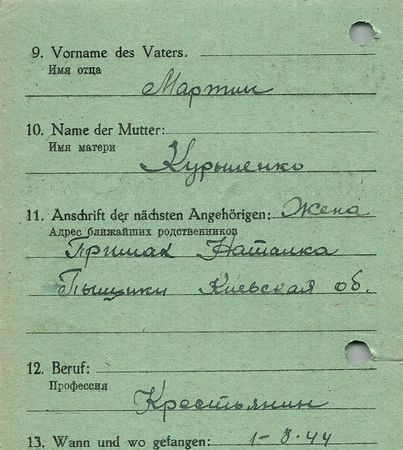 9. Vorname des Vaters.
Имя отца
Мартин
10. Name der Mutter:
Имя матери
Курышенко
11. Anschrift der nächsten Angehörigen: Жена
Адрес ближайших родственников
Примак Наталка
Киевская об.
12. Beruf:
Профессия
Крестьянин
13. Wann und wo gefangen: 1-3.44